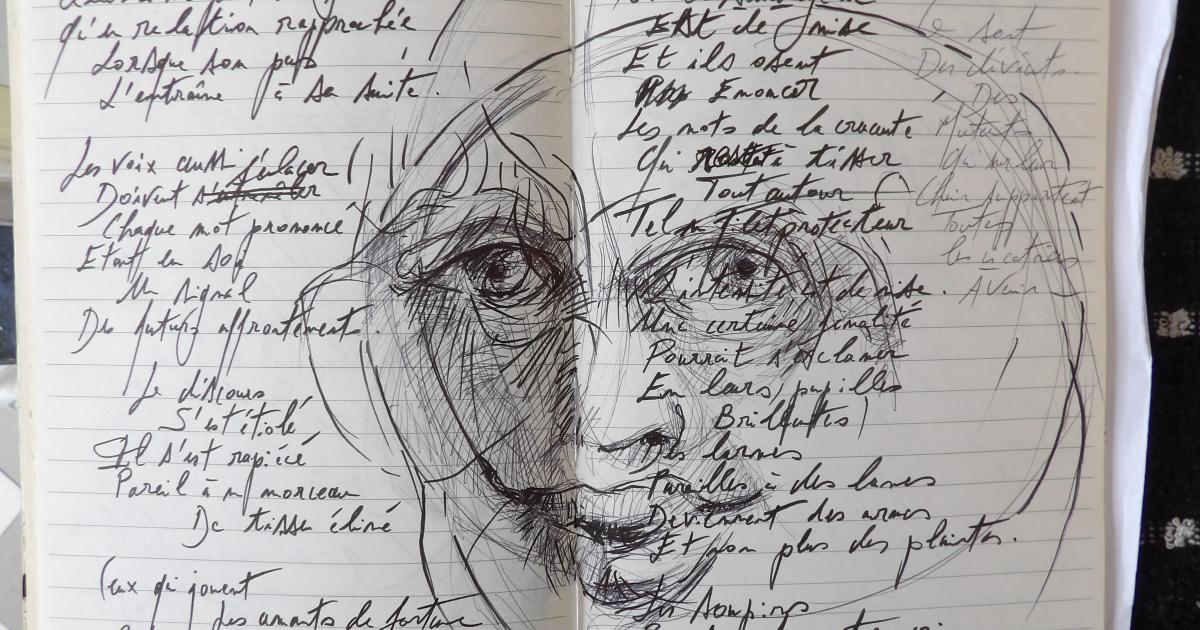 qu'en relation rapprochée
Lorsque son pas
L'entraîne à sa suite.
Les voix aussi s'enlacer
Doivent
Chaque mot prononcé
Etant en soi
Un signal
De futurs affrontements.
Le discours
S'est étiolé
Il s'est rapiécé
Pareil à un morceau
De tissu élimé
Ceux qui jouent
Les amants de fortune
Est de mise
Et ils osent
Enoncer
Les mots de la croute
Qui à tisser
Tout autour
Tel un filet protecteur
L'intensité est de mise.
Une certaine finalité
Pourrait s'exclamer
En leurs pupilles
Brillantes
Des larmes
Pareilles à des lames
Deviennent des armes
Et non plus des plaintes.
Les soupirs
sont
Des divants
Des
Mutants
Chair supportant
Toutes
les cicatrices
A venir